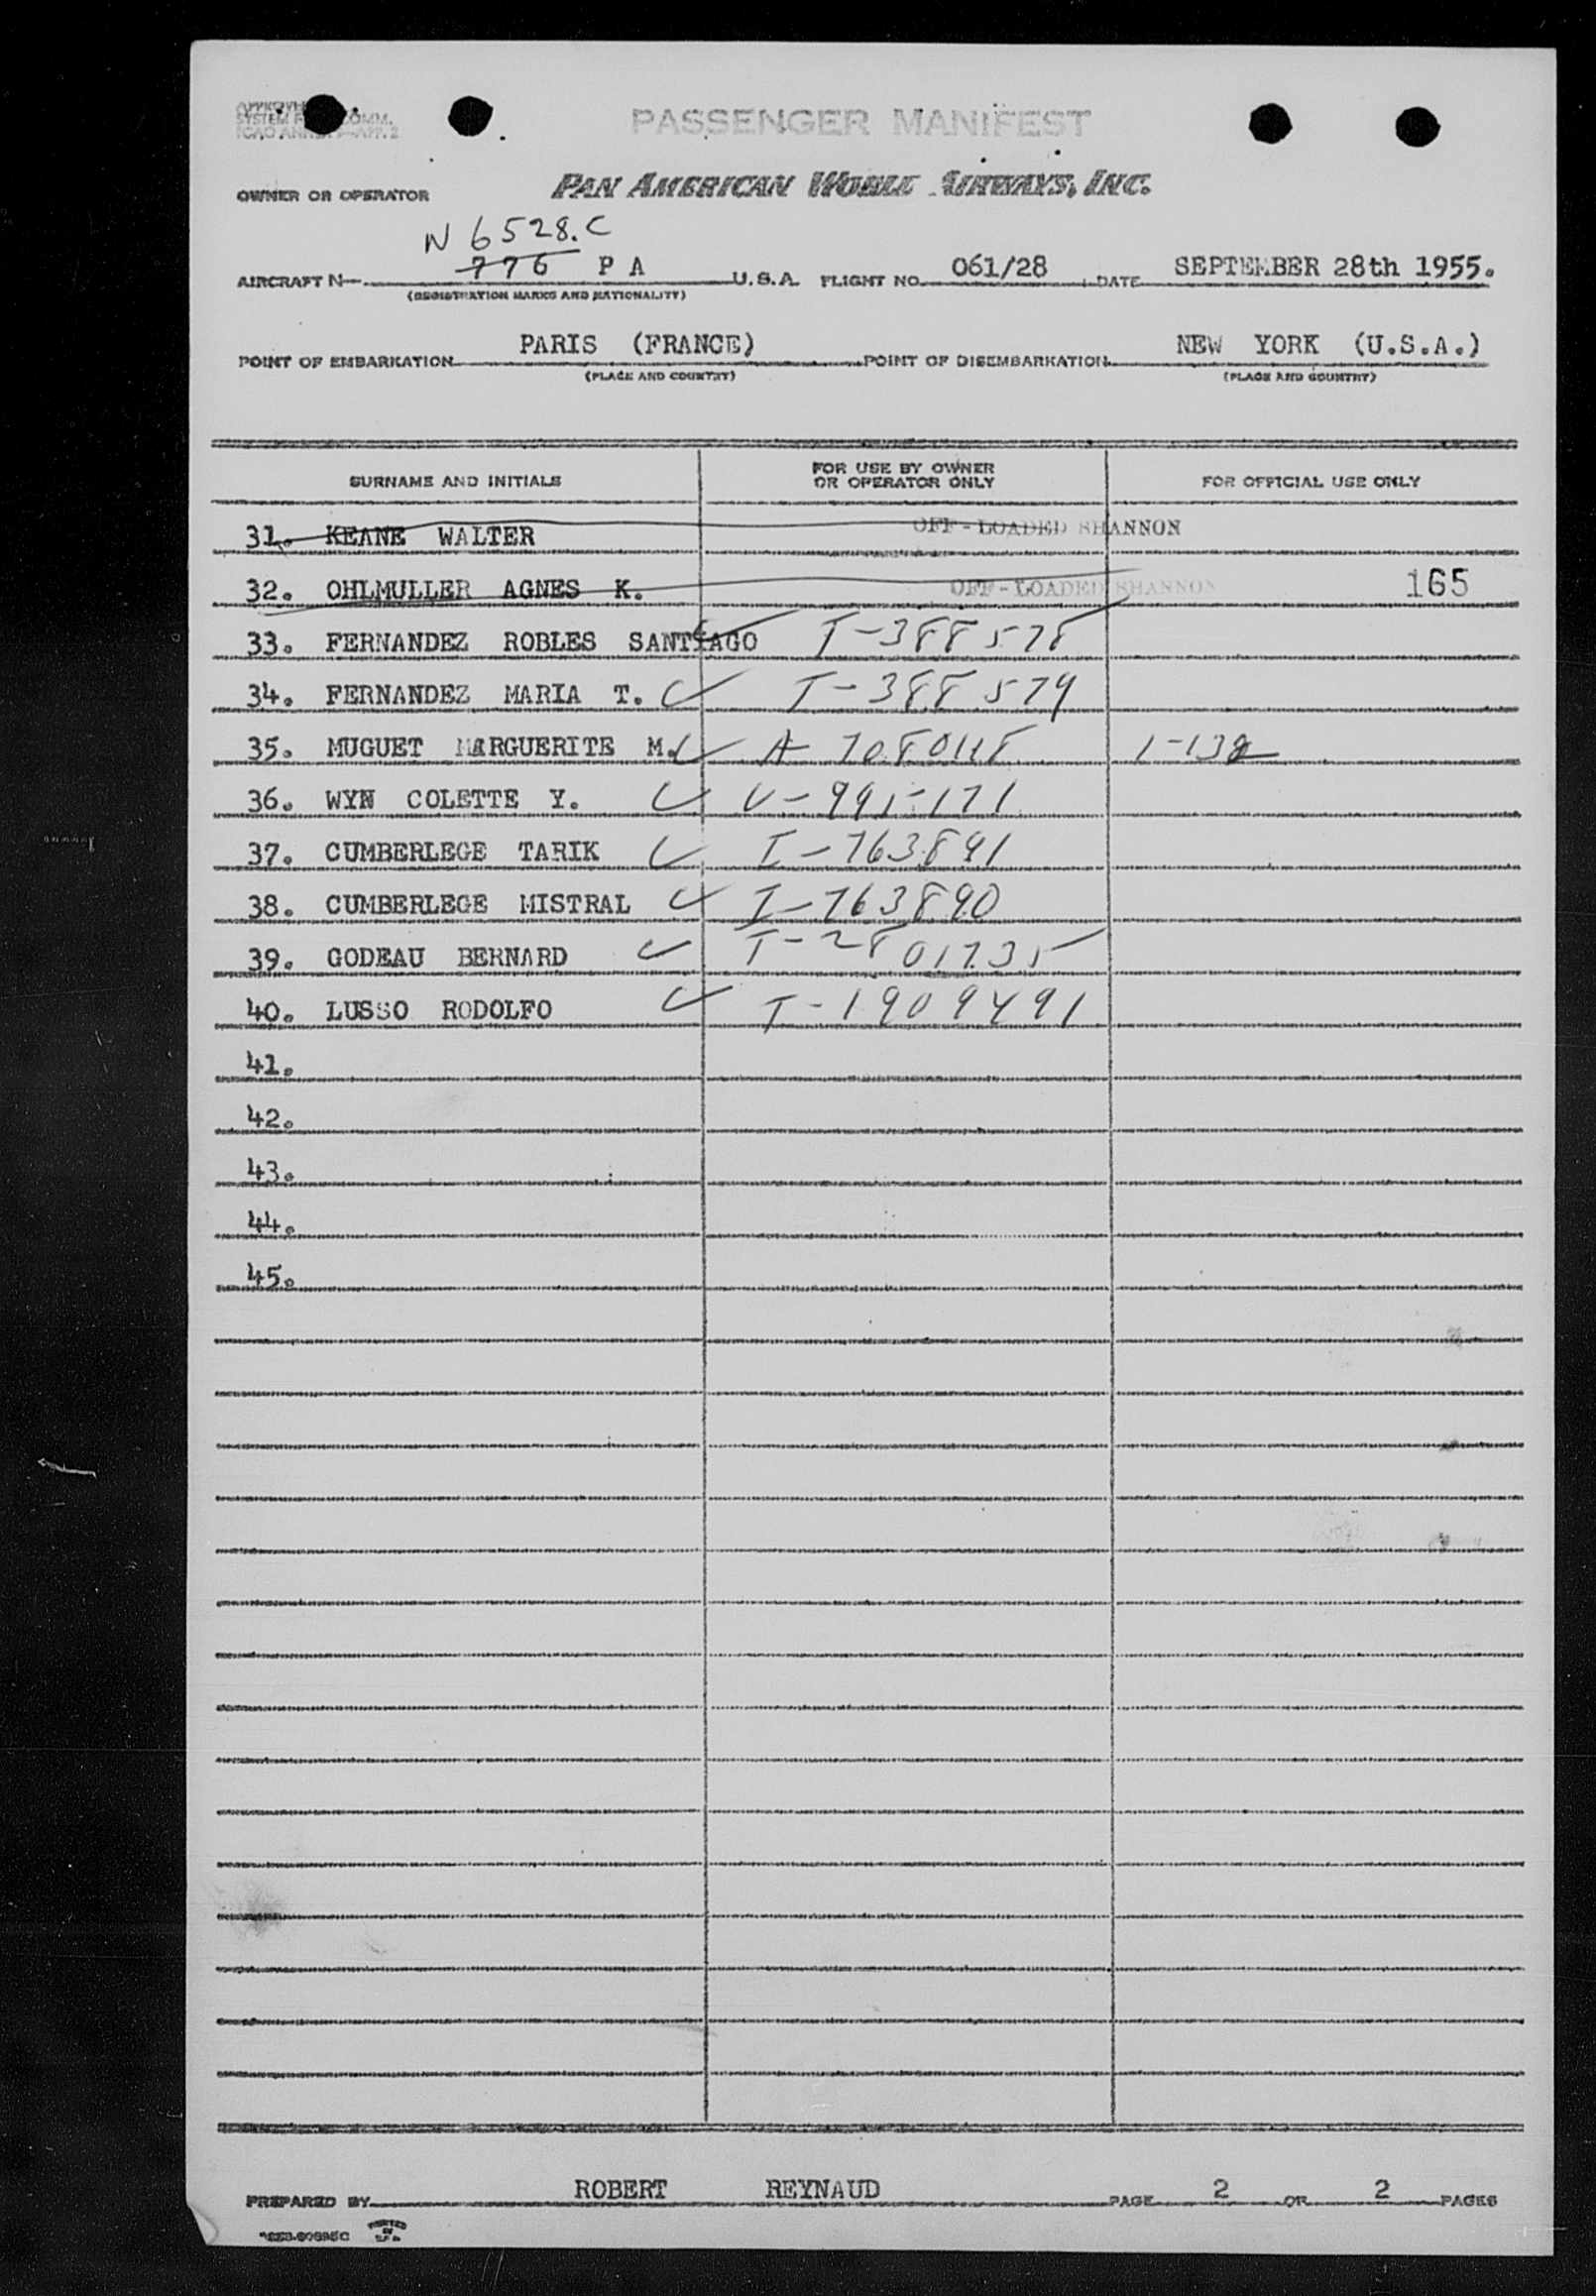 PASSENGER MANIFEST
OWNER OR OPERATOR PAN AMERICAN WORLD AIRWAYS, INC.
N 6528.C
AIRCRAFT N 776 PA U.S.A. FLIGHT NO. 061/28 DATE SEPTEMBER 28th 1955.
(REGISTRATION MARKS AND NATIONALITY)
POINT OF EMBARKATION PARIS (FRANCE) POINT OF DISEMBARKATION NEW YORK (U.S.A.)
(PLACE AND COUNTRY) (PLACE AND COUNTRY)
SURNAME AND INITIALS FOR USE BY OWNER OR OPERATOR ONLY FOR OFFICIAL USE ONLY
31. KEANE WALTER OFF-LOADED SHANNON
32. OHLMULLER AGNES K. OFF-LOADED SHANNON 165
33. FERNANDEZ ROBLES SANTIAGO I-388578
34. FERNANDEZ MARIA T. I-388579
35. MUGUET MARGUERITE M. A
36. WYN COLETTE Y. V-995171
37. CUMBERLEGE TARIK I-763891
38. CUMBERLEGE MISTRAL I-763890
39. GODEAU BERNARD I-2801735
40. LUSSO RODOLFO I-1909491
41.
42.
43.
44.
45.
PREPARED BY ROBERT REYNAUD PAGE 2 OF 2 PAGES